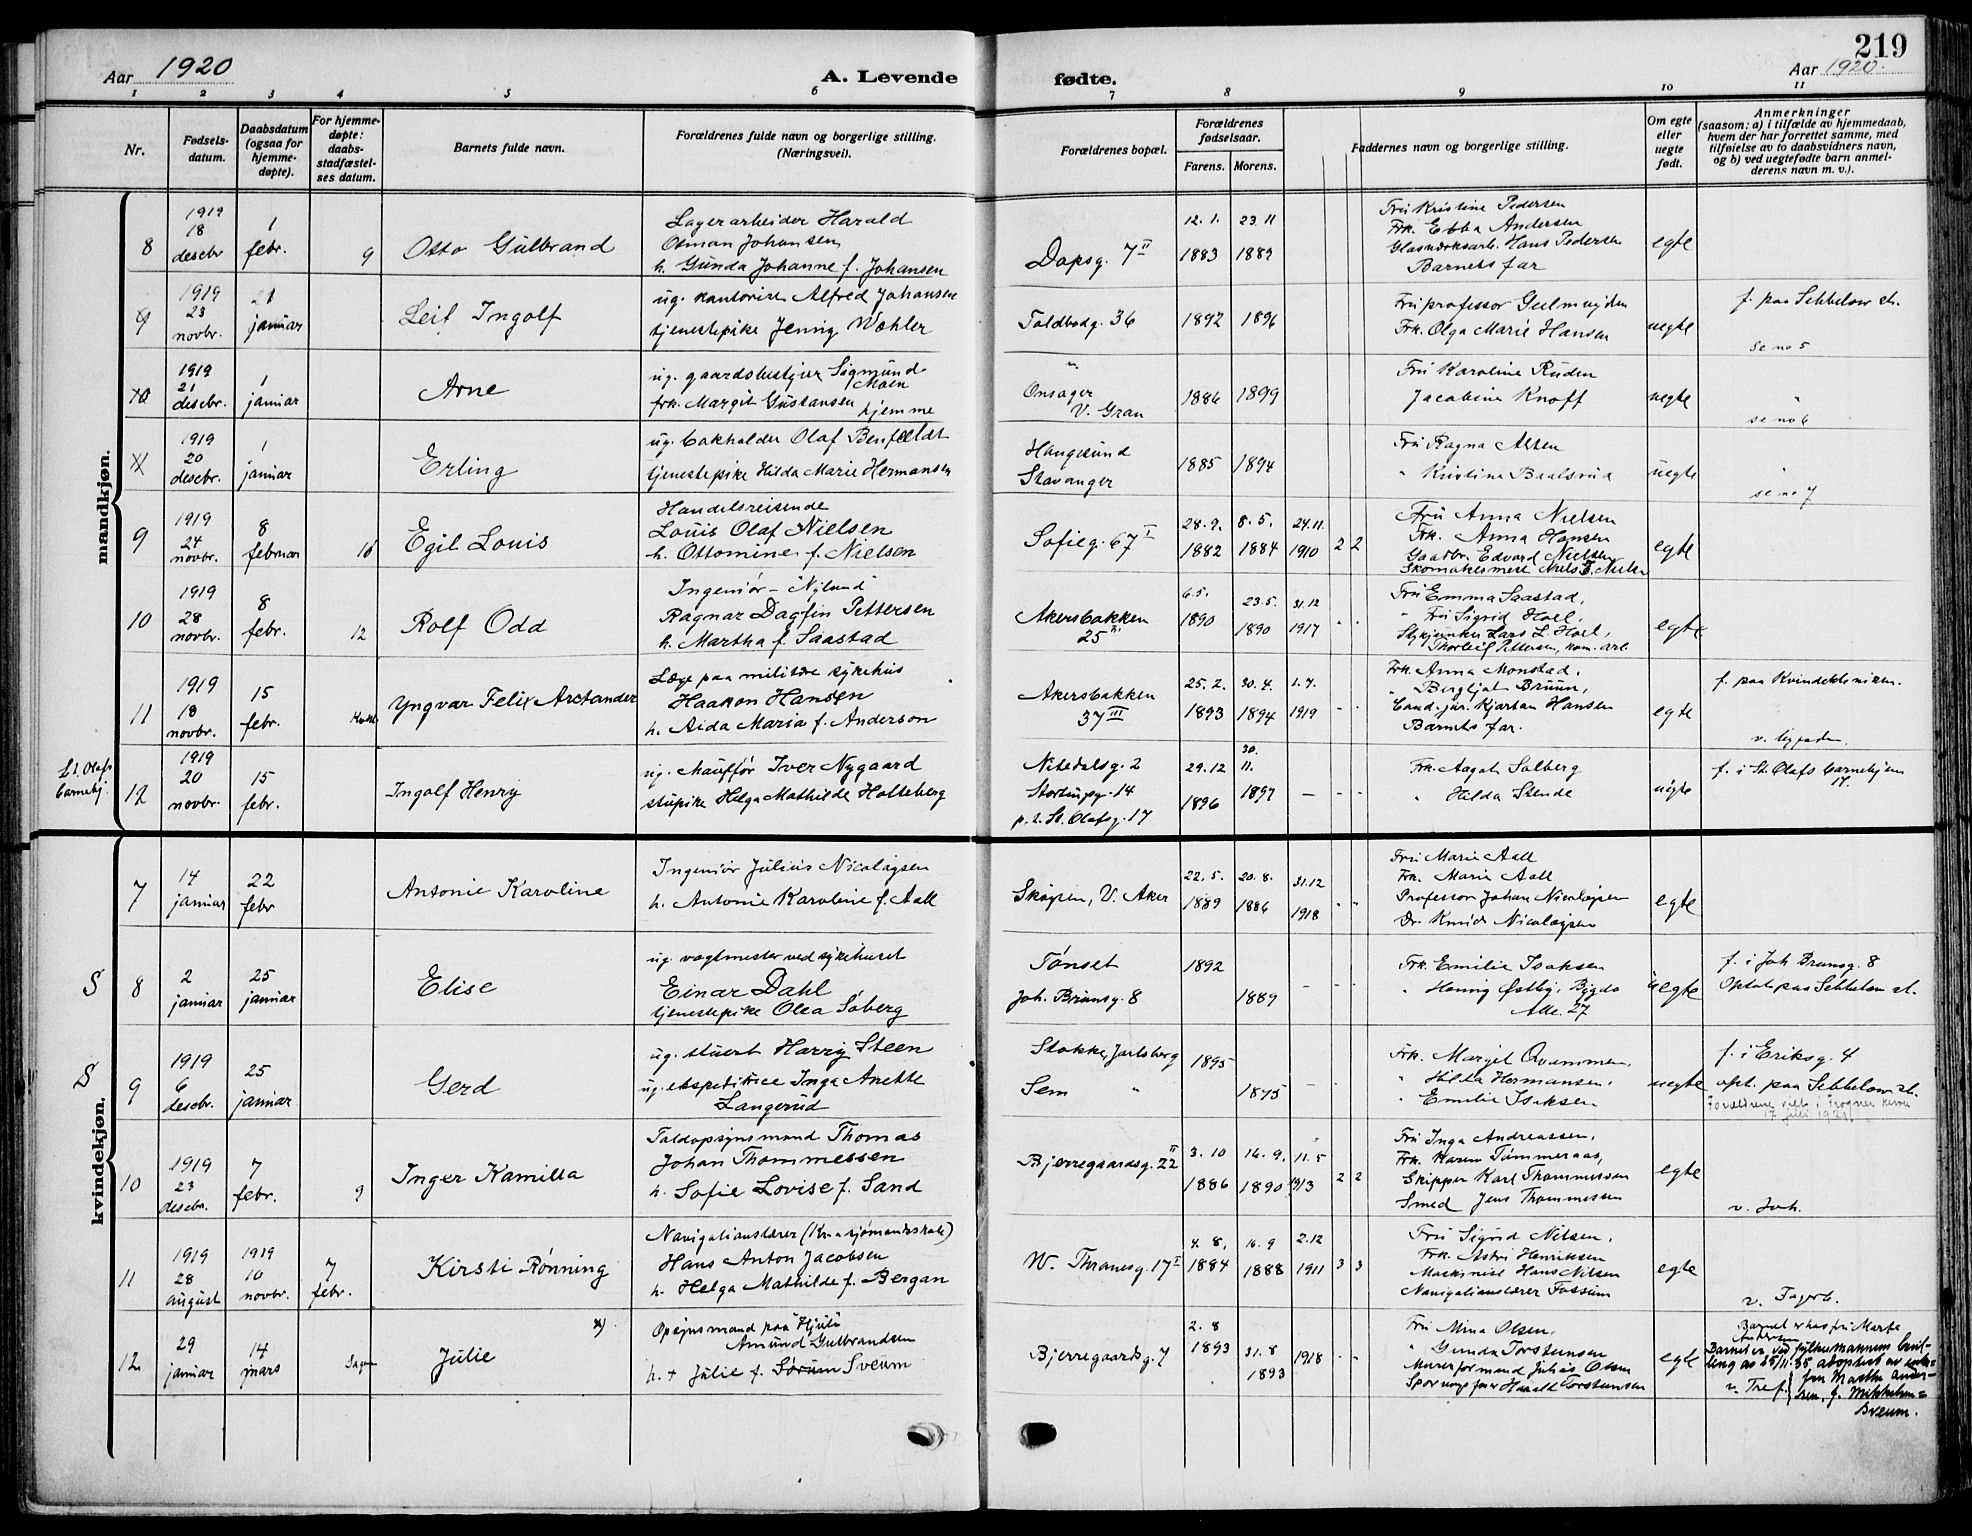 219
Aar 1920
A. Levende fødte.
Aar 1920.
1 2 3 4 5 6 7 8 9 10 11
Nr.
Fødsels-
datum.
Daabsdatum
(ogsaa for
hjemme-
døpte).
For hjemme-
døpte:
daabs-
stadfæstel-
ses datum.
Barnets fulde navn.
Forældrenes fulde navn og borgerlige stilling.
(Næringsvei).
Forældrenes bopæl.
Forældrenes
fødselsaar.
Farens. Morens.
Faddernes navn og borgerlige stilling.
Om egte
eller
uegte
født.
Anmerkninger
(saasom: a) i tilfælde av hjemmedaab,
hvem der har forrettet samme, med
tilføielse av to daabsvidners navn,
og b) ved uegtefødte barn anmel-
derens navn m. v.).
mandkjøn.
8
1919
18
desebr
1
febr.
9
Otto Gulbrand
Lagerarbeider Harald
Osman Johansen
h. Gunda Johanne f. Johansen
Dopsg. 7 II
12. 1. 23. 11
1883 1889
Fru Kristine Pedersen
Frk. Ebba Andersen
Glasværksarb. Hans Pedersen
Barnets far
egte
9
1919
23
novbr.
21
januar
Leif Ingolf
ug. kontorist Alfred Johansen
tjenestepike Jenny Wøhler
Toldbodg. 36
1892 1896
Fru professor Guldmyden
Frk. Olga Marie Hansen
uegte
f. paa Sebbelow st.
se no 5
10
1919
21
desebr.
1
januar
Arne
ug. gaardsbestyrer Sigmund
Moen
frk. Margit Gustansen hjemme
"
Onsager
V. Gran
1886 1899
Fru Karoline Ruden
Jacobine Knoff
uegte
"
se no 6
11
1919
20
desebr.
1
januar
Erling
ug. bokholder Olaf Benfeldt
tjenestepike Hilda Marie Hermansen
Haugesund
Stavanger
1885 1894
Fru Ragna Alsen
" Kristine Baalsrud
uegte
"
se no 7
9
1919
24
novbr.
8
februar
10
Egil Louis
Handelsreisende
Louis Olaf Nielsen
h. Ottomine f. Nielsen
Sofieg. 67 I
28. 9. 8. 5. 24. 11.
1882 1884 1910 2 2
Fru Anna Nielsen
Frk. Anna Hansen
Gaardbr. Edvard Nielsen
Skomakermest. Niels T. Nielsen
egte
10
1919
28
novbr.
8
febr.
12
Rolf Odd
Ingeniør - "Nylund"
Ragnar Dagfin Pettersen
h. Martha f. Saastad
Akersbakken
25 II
6. 5. 23. 5. 31. 12
1890 1890 1917 " "
Fru Emma Saastad,
" Fru Sigrid Hoel,
Stykjunker Lars L. Hoel,
Thorleif Pettersen, kom. arb.
egte
11
1919
18
novbr.
15
febr.
Yngvar Felix Arctander
Læge paa militære sykehus
Haakon Hansen
h. Aida Maria f. Anderson
Akersbakken
37 III
25. 2. 30. 4. 1. 7.
1893 1894 1919 - -
Frk. Anna Monstad,
" Bergljot Bruun,
Cand. jur. Kjartan Hansen
Barnets far.
egte
f. paa Kvindeklniken.
St. Olafs
barnehj.
12
1919
20
novbr.
15
febr.
Ingolf Henry
ug. chauffør Iver Nygaard
stupike Helga Mathilde Holteberg
Nitedalsg. 2
Stortingsg. 14
p. t. St. Olafsg. 17
29. 12 30. 11.
1896 1897 - - -
Frk. Aagot Solberg
" Hilda Stende
uegte
f. i St. Olafs barnehjem
17.
kvindekjøn.
7
14
januar
22
febr
Antonie Karoline
Ingeniør Julius Nicolaysen
h. Antonie Karoline f. Aall
Skøyen, V. Aker
22. 5. 20. 8. 31. 12
1889 1886 1918 " "
Fru Marie Aall
Frk. Marie Aall
Professor Johan Nicolaysen
Dr. Knud Nicolaysen
egte
S
8
2
januar
25
januar
Elise
ug. vagtmester ved sykehuset
Einar Dahl
tjenestepike Olea Soberg
Tønset
Joh. Brunsg. 8
1892
1889 - - -
Frk. Emilie Isaksen
" Henny Østby, Bygdø
Alle. 27
uegte
f. i Joh Brunsg. 8
Optat paa Sebbelow st.
S
9
1919
6
desebr.
25
januar
Gerd
ug. stuert Harry Steen
ug. ekspeditrice Inga Anette
Langerud
Stokke, Jarlsberg
Sem "
1895
1895 - - -
Frk. Margit Qvammen,
" Hilda Hermansen,
" Emilie Isaksen
uegte
f. i Eriksg. 4
opt. paa Sebbelow st.
Forældrene viet i Frogner kirke
17 juli 1921.
10
1919
23
desebr.
7
febr.
9
Inger Kamilla
Toldopsynsmand Thomas
Johan Thommessen
h. Sofie Lovise f. Sand
Bjerregaardsg. 22 II
3. 10 16. 9. 11. 5
1886 1890 1913 2 2
Fru Inga Andreassen,
Frk. Karen Tømmeraas,
Skipper Karl Thommessen
Smed Jens Thommessen
egte
v. Joh.
11
1919
28
august
1919
10
novbr.
7
febr.
Kirsti Rønning
Navigationslærer (Kr.a sjømandsskole)
Hans Anton Jacobsen
h. Helga Mathilde f. Bergan
W. Thranesg. 17 I
4. 8. 16. 9 2. 12
1884 1888 1911 3 3
Fru Sigrid Nilsen,
Frk. Astri Henriksen
Maskinist Hans Nilsen
Navigationslærer Fossum
egte
v. Fagerb.
12
29
januar
14
mars
Sagene
Julie
x)
Opsynsmand paa "Hjula"
Amund Gulbrandsen
h. + Julie f. Sørum Sveum
Bjerregaardsg. 7
2. 8 31. 8
1893 1893 1918 - -
Fru Mina Olsen,
" Gunda Torstensen
Murerformand Julius Olsen
Sporvognsfører Harald Torstensen
egte
Barnet er hos fru Marta
Andersen
Barnet er ved fylkesmannens bevil-
ling av 25/11.35 adoptert av enke-
fru Marthe Ander-
sen, f. Mikkelsen=
Sveum.
v. Tref.